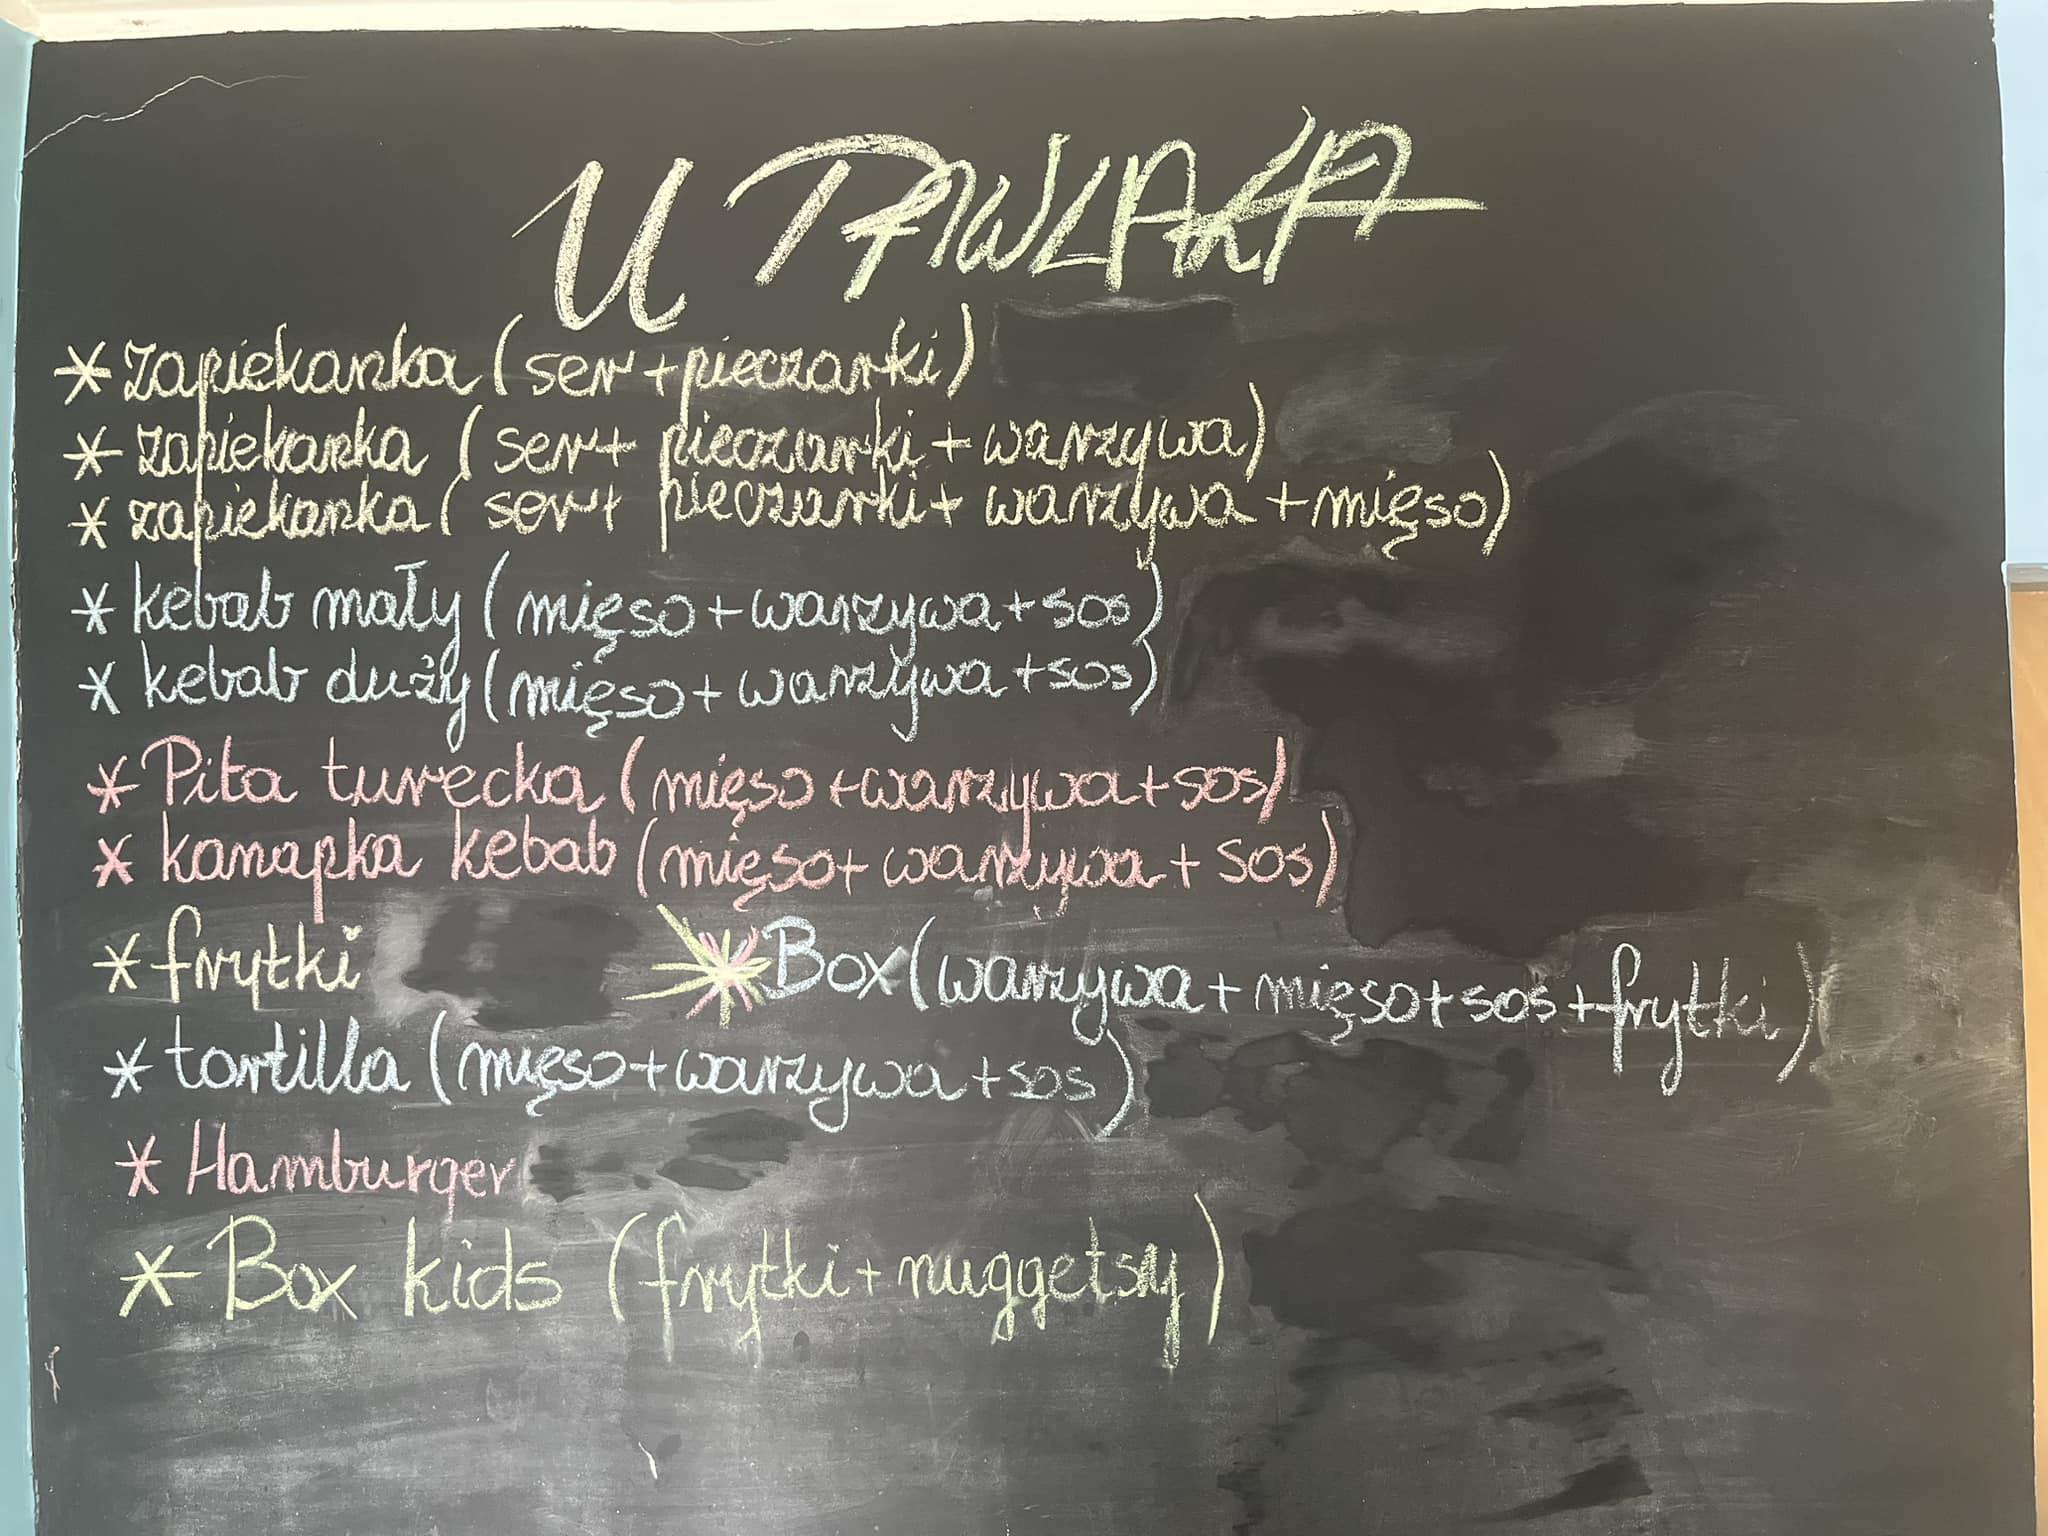 U PAWLAKA
* zapiekanka (ser + pieczarki)
* zapiekanka (ser + pieczarki + warzywa)
* zapiekanka (ser + pieczarki + warzywa + mięso)
* kebab mały (mięso + warzywa + sos)
* kebab duży (mięso + warzywa + sos)
* Pita turecka (mięso + warzywa + sos)
* kanapka kebab (mięso + warzywa + sos)
* frytki * Box (warzywa + mięso + sos + frytki)
* tortilla (mięso + warzywa + sos)
* Hamburger
* Box kids (frytki + nuggetsy)